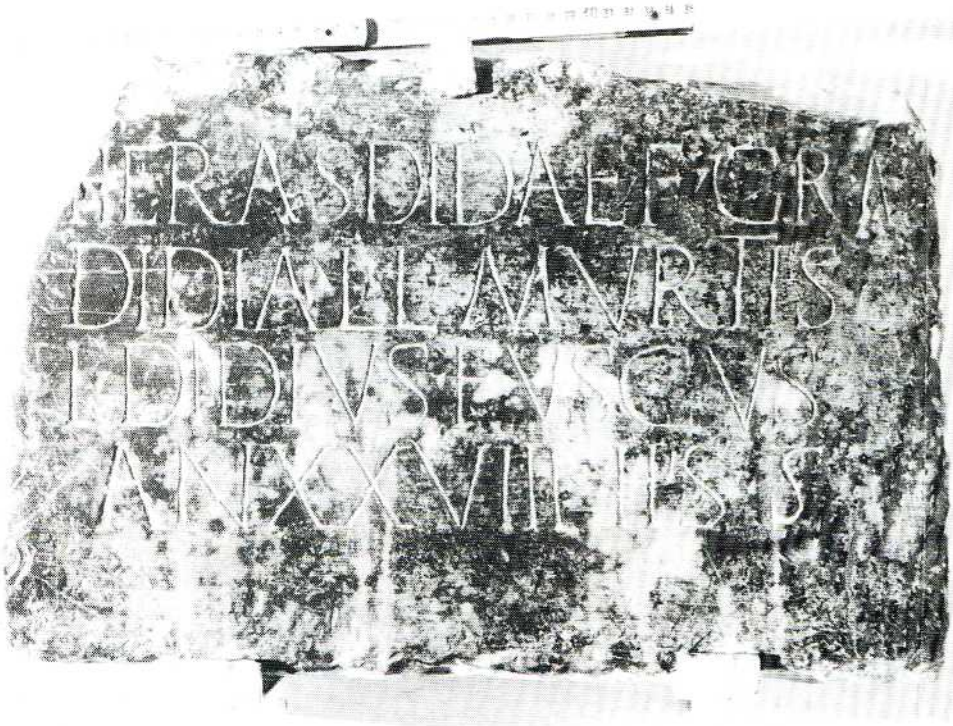 HERAS DIDAE L F GRA
DIDIAE L MVRTIS
L DIDIVS FVSCVS
AN XXVIII H S S